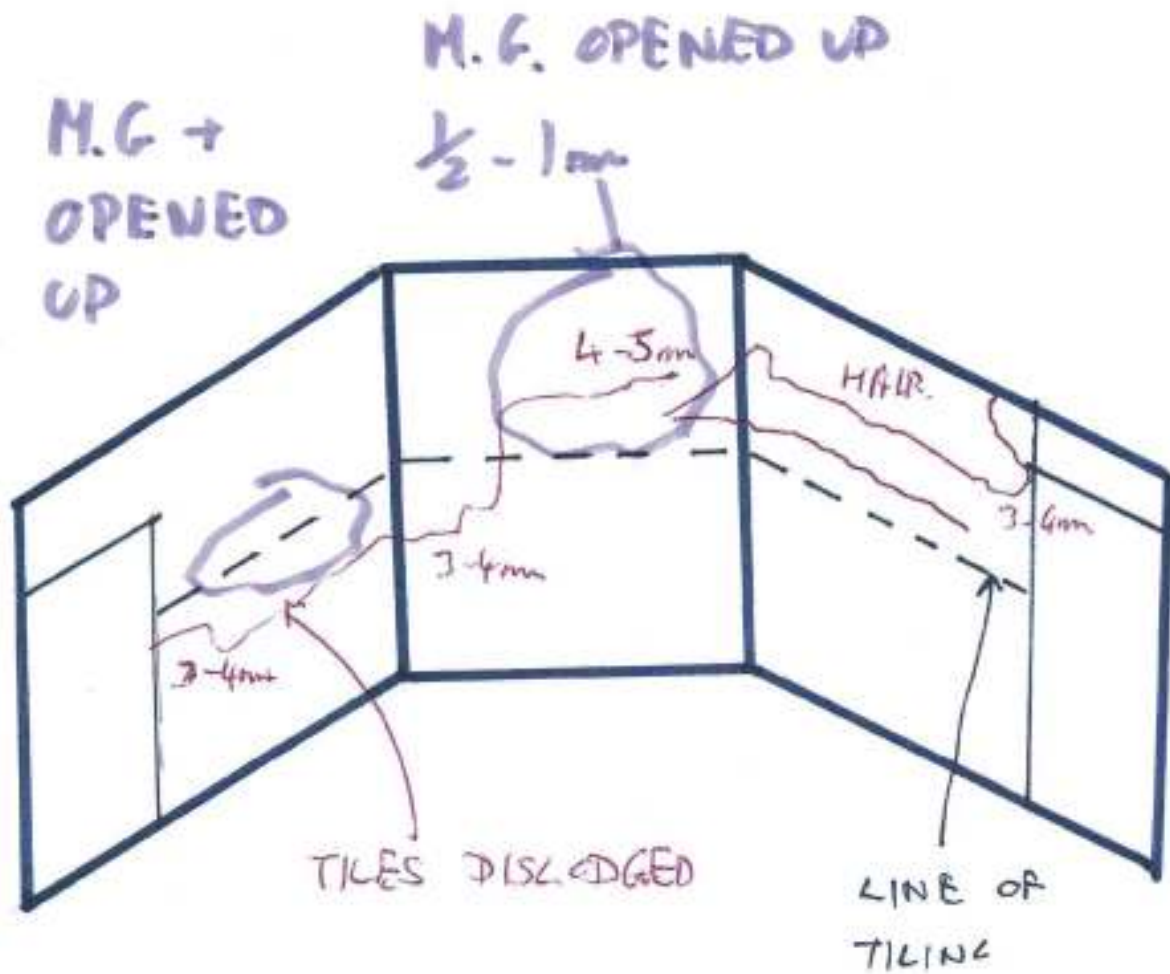 M.G. OPENED UP
½ - 1mm
M.G +
OPENED
UP
4-5mm
HAIR.
3-4mm
3-4mm
3-4mm
TILES DISLODGED
LINE OF
TILING